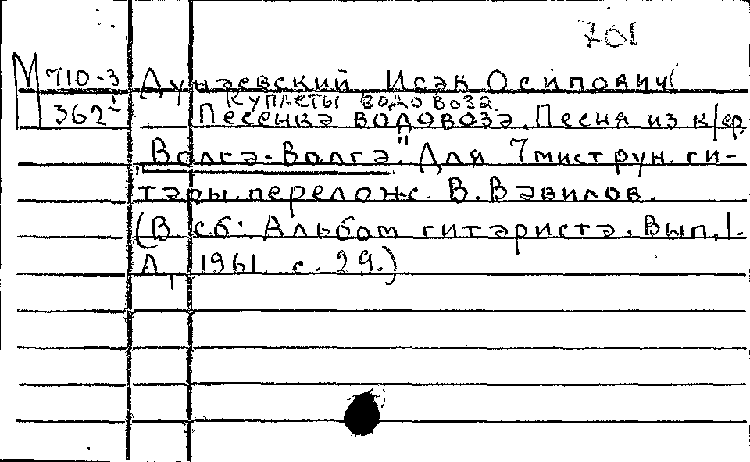 701
М 710-3 Дунаевский Исак Осипович
Куплеты водовоза.
362 Песенка водовоза. Песня из к/ф
"Волга-Волга". Для 7миструн. ги-
тары перелож. В. Вавилов.
(В сб: Альбом гитариста. Вып. 1.
Л, 1961 с. 29.)